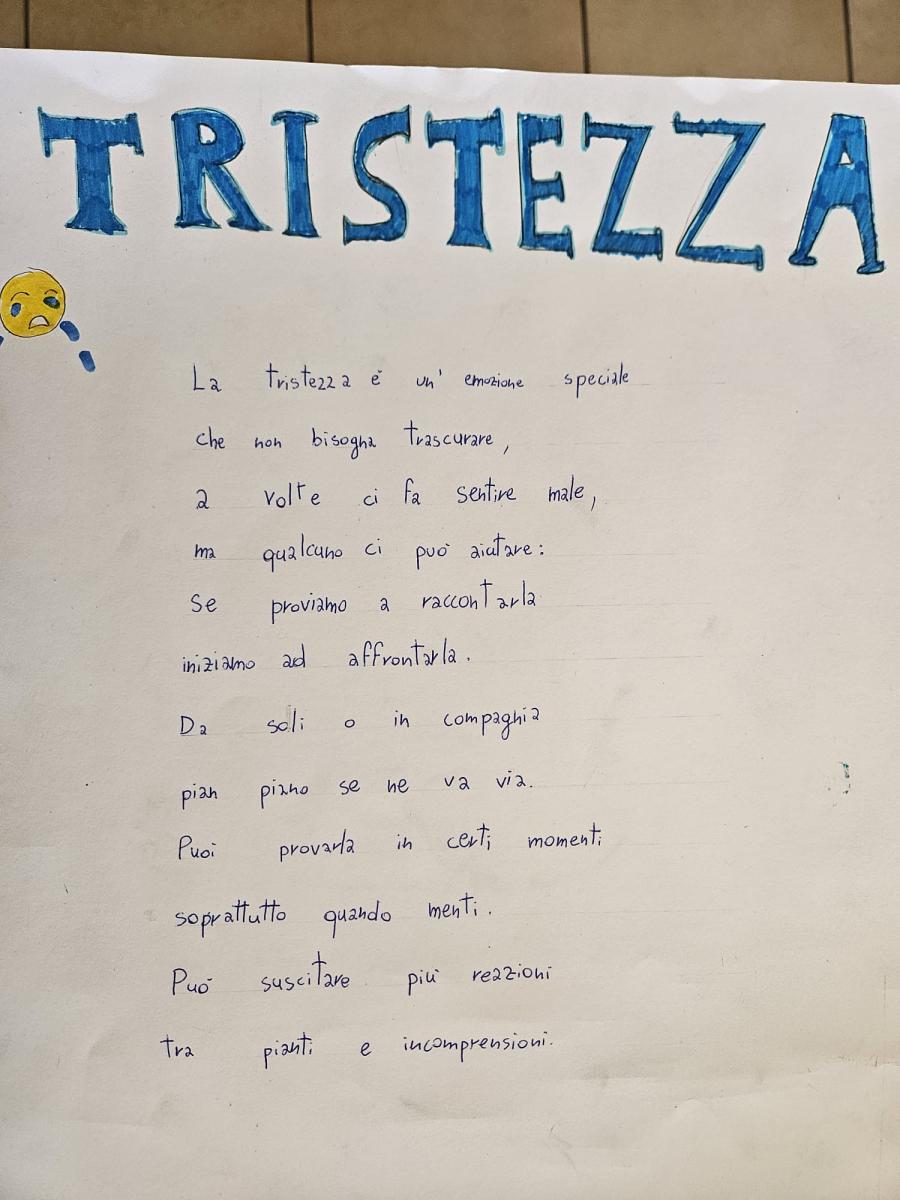 TRISTEZZA
La tristezza è un' emozione speciale
che non bisogna trascurare,
a volte ci fa sentire male,
ma qualcuno ci può aiutare:
Se proviamo a raccontarla
iniziamo ad affrontarla.
Da soli o in compagnia
pian piano se ne va via.
Puoi provarla in certi momenti
soprattutto quando menti.
Può suscitare più reazioni
tra pianti e incomprensioni.